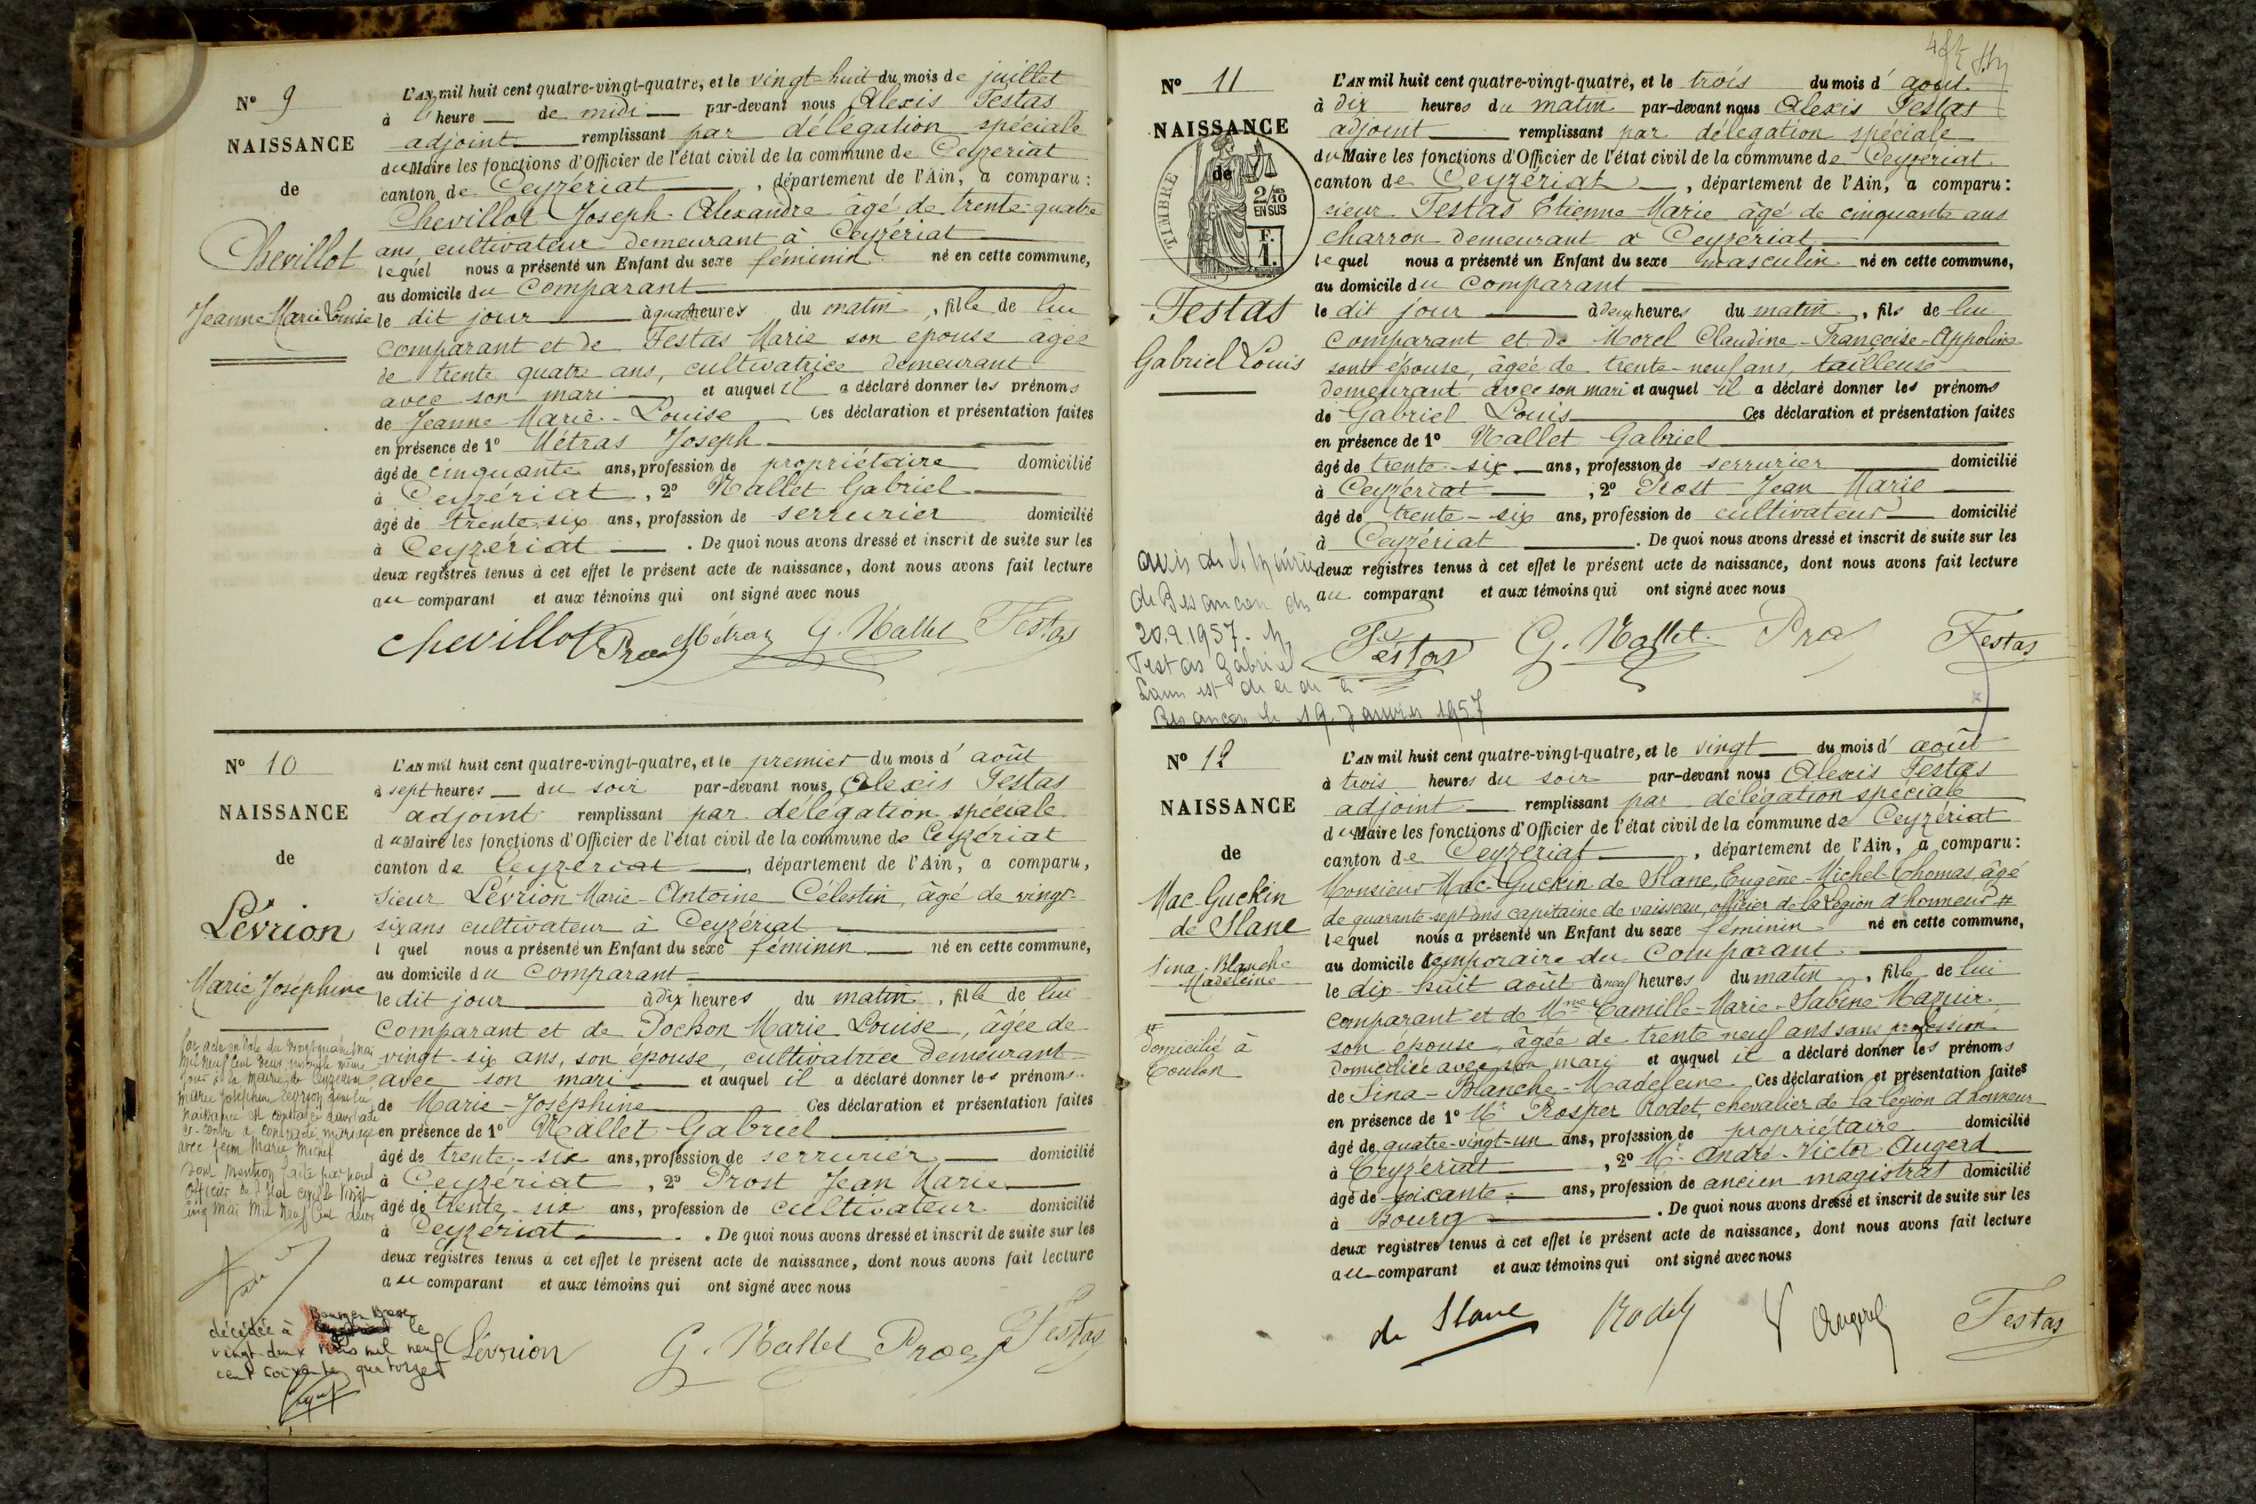 Nº 9
NAISSANCE
de
Chevillot
Jeanne Marie Louise
L'AN mil huit cent quatre-vingt-quatre, et le vingt-huit du mois de juillet
à l'heure de midi par-devant nous Alexis Festas
adjoint remplissant par délégation spéciale
du Maire les fonctions d'Officier de l'état civil de la commune de Ceyzériat
canton de Ceyzériat, département de l'Ain, a comparu :
Chevillot Joseph-Alexandre âgé de trente-quatre
ans, cultivateur demeurant à Ceyzériat
lequel nous a présenté un Enfant du sexe féminin né en cette commune,
au domicile du comparant
le dit jour à quatre heures du matin, fille de lui
comparant et de Festas Marie son épouse agée
de trente quatre ans, cultivatrice demeurant
avec son mari et auquel il a déclaré donner les prénoms
de Jeanne Marie-Louise Ces déclaration et présentation faites
en présence de 1º Métras Joseph
âgé de cinquante ans, profession de propriétaire domicilié
à Ceyzériat, 2º Nallet Gabriel
âgé de trente-six ans, profession de serrurier domicilié
à Ceyzériat. De quoi nous avons dressé et inscrit de suite sur les
deux registres tenus à cet effet le présent acte de naissance, dont nous avons fait lecture
au comparant et aux témoins qui ont signé avec nous
Chevillot Métraz G. Nallet Festas
Nº 10
NAISSANCE
de
Lévrion
Marie Joséphine
L'AN mil huit cent quatre-vingt-quatre, et le premier du mois d'août
à sept heures du soir par-devant nous Alexis Festas
adjoint remplissant par délégation spéciale
du Maire les fonctions d'Officier de l'état civil de la commune de Ceyzériat
canton de Ceyzériat, département de l'Ain, a comparu,
sieur Lévrion Marie-Antoine Célestin, âgé de vingt-
six ans cultivateur à Ceyzériat
l quel nous a présenté un Enfant du sexe féminin né en cette commune,
au domicile du comparant
le dit jour à dix heures du matin, fille de lui
comparant et de Pochon Marie Louise, âgée de
vingt-six ans, son épouse, cultivatrice demeurant
avec son mari et auquel il a déclaré donner les prénoms
de Marie-Joséphine Ces déclaration et présentation faites
en présence de 1º Nallet Gabriel
âgé de trente-six ans, profession de serrurier domicilié
à Ceyzériat, 2º Prost Jean Marie
âgé de trente-six ans, profession de cultivateur domicilié
à Ceyzériat. De quoi nous avons dressé et inscrit de suite sur les
deux registres tenus à cet effet le présent acte de naissance, dont nous avons fait lecture
au comparant et aux témoins qui ont signé avec nous
Par acte en date du vingt quatre mai
mil neuf cent deux, inscrit le même
jour à la mairie de Ceyzériat
Marie Joséphine Lévrion dont la
naissance est constatée dans l'acte
ci-contre a contracté mariage
avec Jean Marie Michel
dont mention faite par nous
officier de l'état civil le vingt
cinq mai mil neuf cent deux
décédée à Bourg en Bresse le
vingt-deux mars mil neuf
cent soixante quatorze
Lévrion G. Nallet Festas
Nº 11
NAISSANCE
de
TIMBRE
2/10
EN SUS
F.
1.
Festas
Gabriel Louis
L'AN mil huit cent quatre-vingt-quatre, et le trois du mois d'août
à dix heures du matin par-devant nous Alexis Festas
adjoint remplissant par délégation spéciale
du Maire les fonctions d'Officier de l'état civil de la commune de Ceyzériat
canton de Ceyzériat, département de l'Ain, a comparu :
sieur Festas Etienne Marie âgé de cinquante ans
charron demeurant à Ceyzériat
lequel nous a présenté un Enfant du sexe masculin né en cette commune,
au domicile du comparant
le dit jour à deux heures du matin, fils de lui
comparant et de Morel Claudine-Françoise-Appoline
sont épouse, âgée de trente-neuf ans, tailleuse
demeurant avec son mari et auquel il a déclaré donner les prénoms
de Gabriel Louis Ces déclaration et présentation faites
en présence de 1º Nallet Gabriel
âgé de trente-six ans, profession de serrurier domicilié
à Ceyzériat, 2º Prost Jean Marie
âgé de trente-six ans, profession de cultivateur domicilié
à Ceyzériat. De quoi nous avons dressé et inscrit de suite sur les
deux registres tenus à cet effet le présent acte de naissance, dont nous avons fait lecture
au comparant et aux témoins qui ont signé avec nous
avis de mairie
de Besançon du
20.9.1957.
Festas Gabriel
Louis est décédé à
Besançon le 19 Janvier 1957
Festas G. Nallet Festas
Nº 12
NAISSANCE
de
Mac-Guckin
de Slane
Sina-Blanche
Madeleine
#
Domicilié à
Toulon
L'AN mil huit cent quatre-vingt-quatre, et le vingt du mois d'août
à trois heures du soir par-devant nous Alexis Festas
adjoint remplissant par délégation spéciale
du Maire les fonctions d'Officier de l'état civil de la commune de Ceyzériat
canton de Ceyzériat, département de l'Ain, a comparu :
Monsieur Mac-Guckin de Slane, Eugène-Michel-Thomas, âgé
de quarante-sept ans capitaine de vaisseau, officier de la Légion d'honneur #
lequel nous a présenté un Enfant du sexe féminin né en cette commune,
au domicile temporaire du comparant
le dix-huit août à neuf heures du matin, fille de lui
comparant et de Mme Camille-Marie-Sabine Mazuir
son épouse, âgée de trente neuf ans sans profession
domiciliée avec son mari et auquel il a déclaré donner les prénoms
de Sina-Blanche-Madeleine Ces déclaration et présentation faites
en présence de 1º Mr Prosper Rodet, chevalier de la légion d'honneur
âgé de quatre-vingt-un ans, profession de propriétaire domicilié
à Ceyzériat, 2º Mr André-Victor Augerd
âgé de soixante ans, profession de ancien magistrat domicilié
à Bourg. De quoi nous avons dressé et inscrit de suite sur les
deux registres tenus à cet effet le présent acte de naissance, dont nous avons fait lecture
au comparant et aux témoins qui ont signé avec nous
de Slane Rodet V Augerd Festas